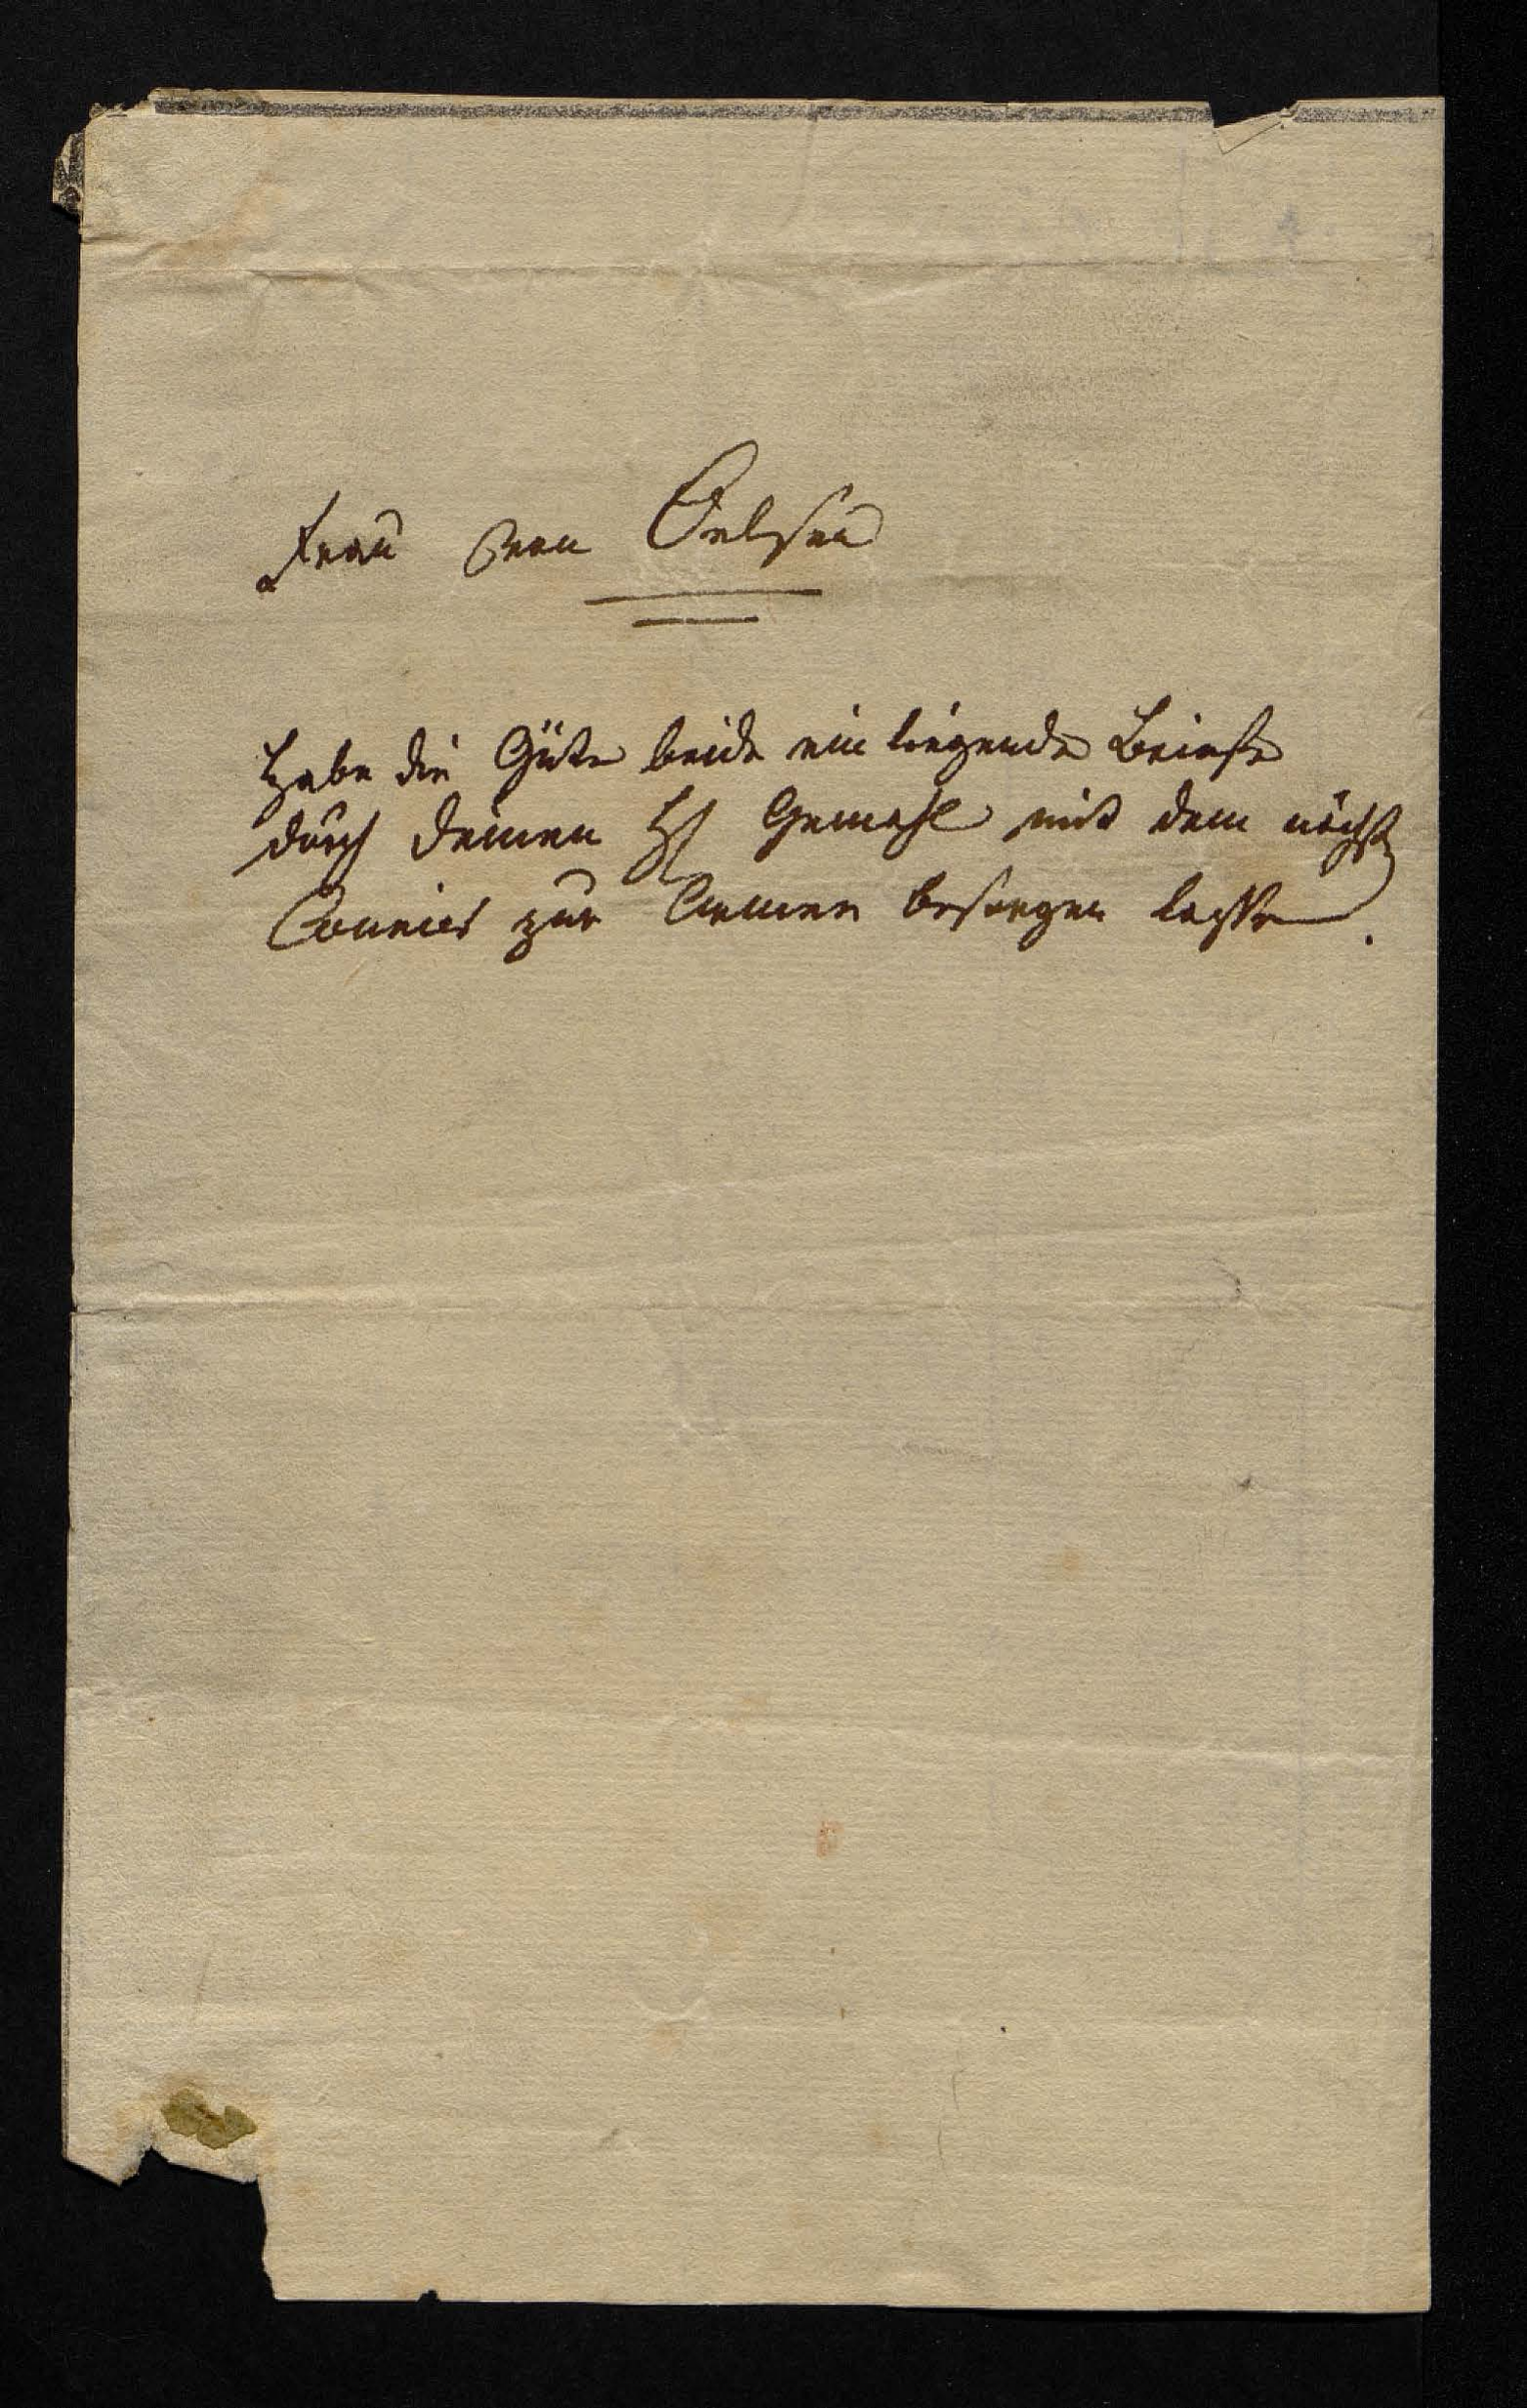 Frau von Oelsen
Habe die Güte beide ein liegende Briefe
durch deinen H Gemahl mit dem nächst
Courier zur Armee besorgen lasse.